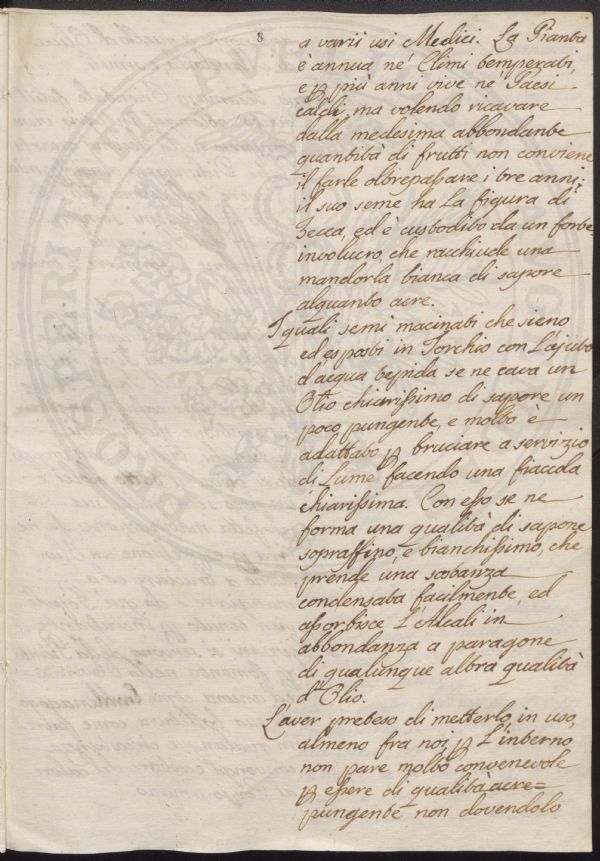 8
a varii usi Medici. La Pianta
è annua ne' Climi temperati,
e p più anni vive ne' Paesi
caldi, ma volendo ricavare
dalla medesima abbondante
quantità di frutti non conviene
il farle oltrepassare i tre anni;
il suo seme ha La figura di
Zecca, ed è custodito da un forte
involucro, che racchiude una
mandorla bianca di sapore
alquanto acre.
I quali semi macinati che sieno
ed esposti in Torchio con L'ajuto
d'acqua tepida se ne cava un
Olio chiarissimo di sapore un
poco pungente, e molto è
adattato p bruciare a servizio
di Lume facendo una fiaccola
chiarissima. Con esso se ne
forma una qualità di sapone
sopraffino, e bianchissimo, che
prende una sostanza
condensata facilmente, ed
assorbisce L'Alcali in
abbondanza a paragone
di qualunque altra qualità
d'Olio.
L'aver preteso di metterlo in uso
almeno fra noi p L'interno,
non pare molto convenevole
p essere di qualità acre=
pungente non dovendolo